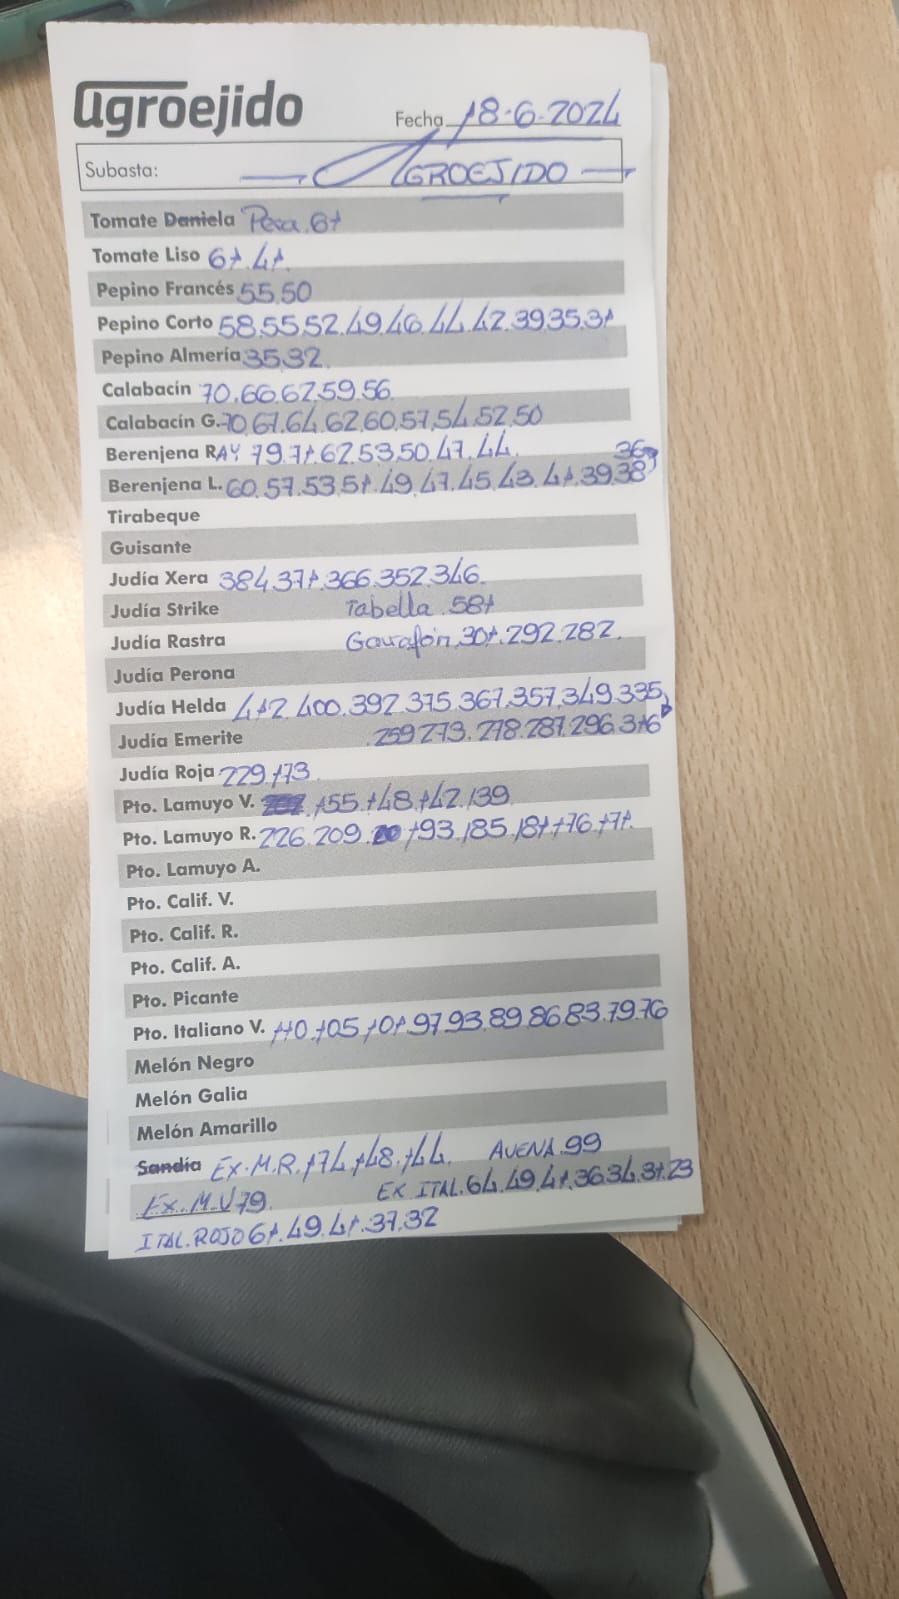 agroejido
Fecha 18-6-2024
Subasta: AGROEJIDO
Tomate Daniela Pera.61
Tomate Liso 61.41.
Pepino Francés 55.50
Pepino Corto 58.55.52.49.46.44.42.39.35.31
Pepino Almería 35.32.
Calabacín 70.66.62.59.56.
Calabacín G. 70.67.64.62.60.57.54.52.50
Berenjena RAY 79.71.62.53.50.47.44.
Berenjena L. 60.57.53.51.49.47.45.43.41.39.38 36
Tirabeque
Guisante
Judía Xera 384.371.366.352.346.
Judía Strike Tabella.581
Judía Rastra Garrafón.301.292.282.
Judía Perona
Judía Helda 412.400.392.375.367.357.349.335
Judía Emerite .259.273.278.287.296.316
Judía Roja 229.173.
Pto. Lamuyo V. 155.148.142.139
Pto. Lamuyo R. 226.209. 193.185.181.176.171.
Pto. Lamuyo A.
Pto. Calif. V.
Pto. Calif. R.
Pto. Calif. A.
Pto. Picante
Pto. Italiano V. 110.105.101.97.93.89.86.83.79.76
Melón Negro
Melón Galia
Melón Amarillo
Sandía Ex.M.R.174.148.144. AVENA.99
Ex.M.V 79. EX ITAL.64.49.41.36.34.31.23
ITAL.ROJO 61.49.41.37.32